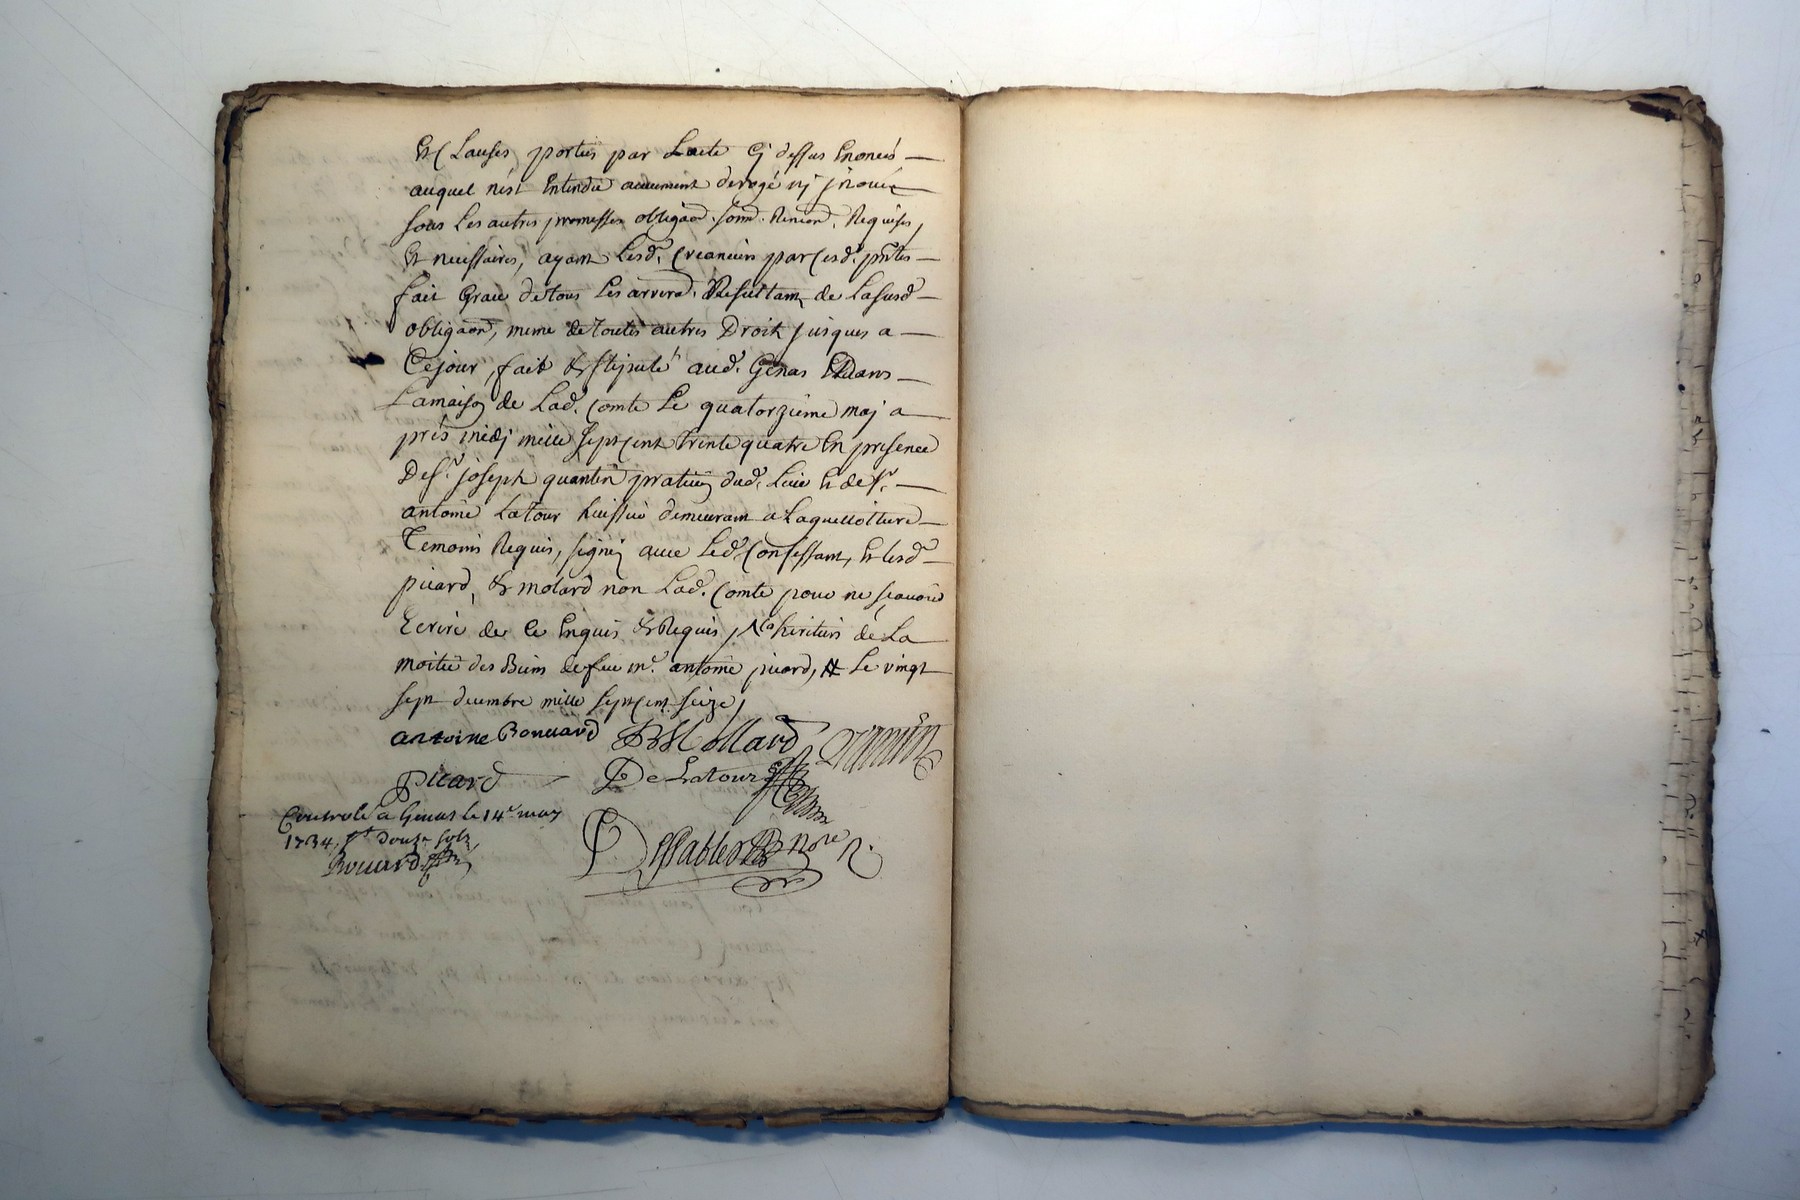 Et Clauses portées par Lacte cy dessus Enoncés
auquel n'est Entendu aucunement derogé ny jnoué
sous Les autres promesses obligaon. soum. Renion. Requises,
Et necessaires, ayant Lesd. Creanciers par Cesd. pntes
fait Grace de tous Les arrerd. Resultant de Lasusd
obligaon, meme de toutes autres Droit jusques a
Cejour, fait & stipulé aud. Genas Dans
Lamaison de Lad. Comte Le quatorzieme may a
prés midy mille sept Cent trente quatre En presence
De sr. joseph quantin praticien dud. Lieu Et de sr.
antoine Latour huissier demeurant a Laguillotiere
Temoins Requis, signés avec Led. Confessant, Et Lesd
picard, & molard non Lad. Comte pour ne sçavoir
Ecrire de ce Enquis & Requis, heritiers de La
moitié des Biens de feu me. antoine picard, Le vingt
sept decembre mille sept Cent seize,
antoine Bonuard Mollard quantin
picard DeLatour
Controlé a Genas le 14e may
1734, rt. douze sols,
Bouard Dessables nore R.